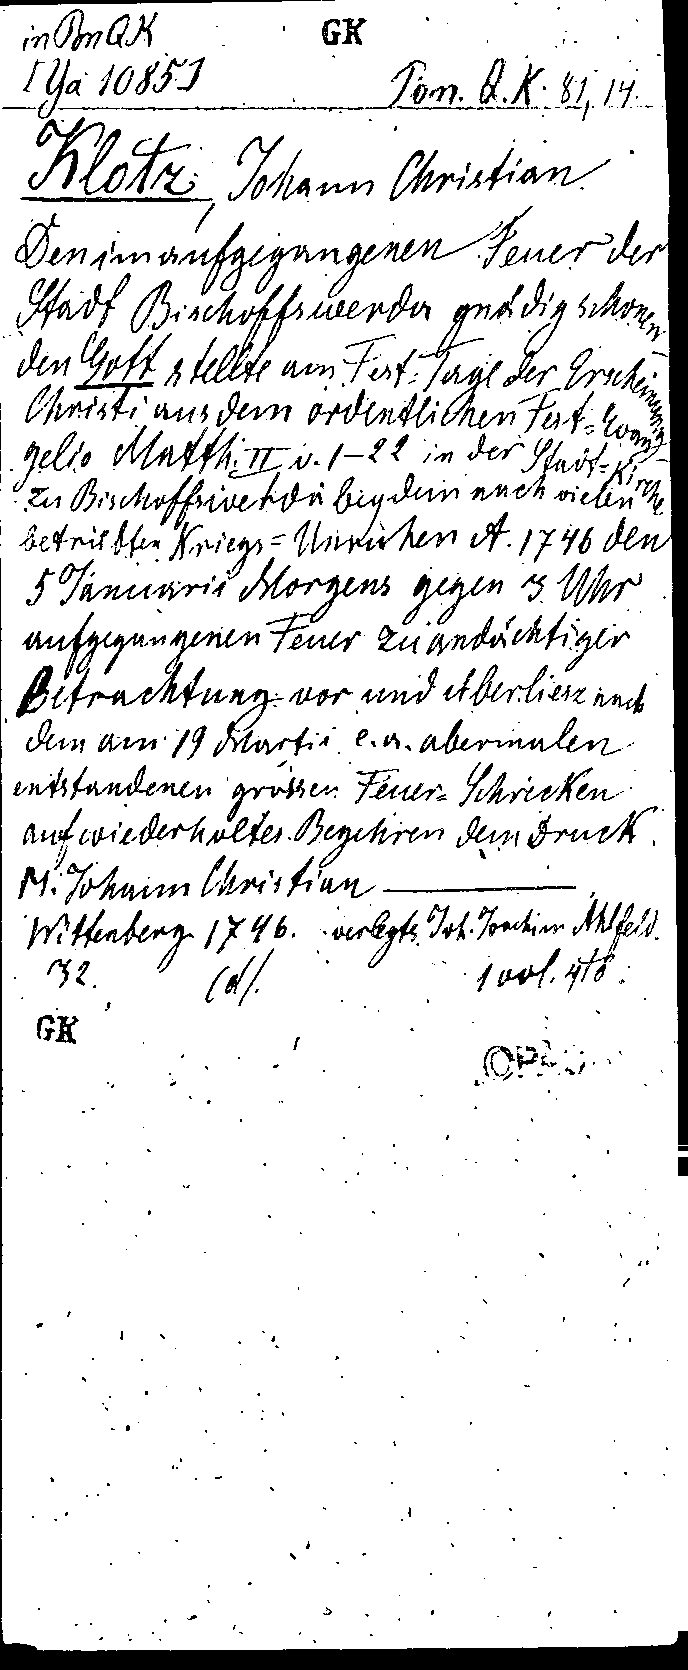 in Pon QK
GK
[Ya 1085]
Pon. Q. K. 81, 14.
Klotz, Johann Christian.
Den im aufgegangenen Feuer der
Stadt Bischoffswerda gnädig schonen
den Gott stellte am Fest=Tage der Erscheinung
Christi aus dem ordentlichen Fest=Evan
gelio Matth. II v. 1-22 in der Stadt=Kirche
zu Bischoffswerda bey dem nach vielen
betrübten Kriegs=Unruhen A. 1746 den
5 Januarii Morgens gegen 3 Uhr
aufgegangenen Feuer zu andächtiger
Betrachtung vor und überliesz nach
dem am 19 Martii e. a. abermalen
entstandenen grossen Feuer=Schrecken
auf wiederholtes Begehren dem Druck
M. Johann Christian ———
Wittenberg 1746. verlegts Joh. Joachim Ahlfeld.
32. (d). 1 vol. 4to.
GK